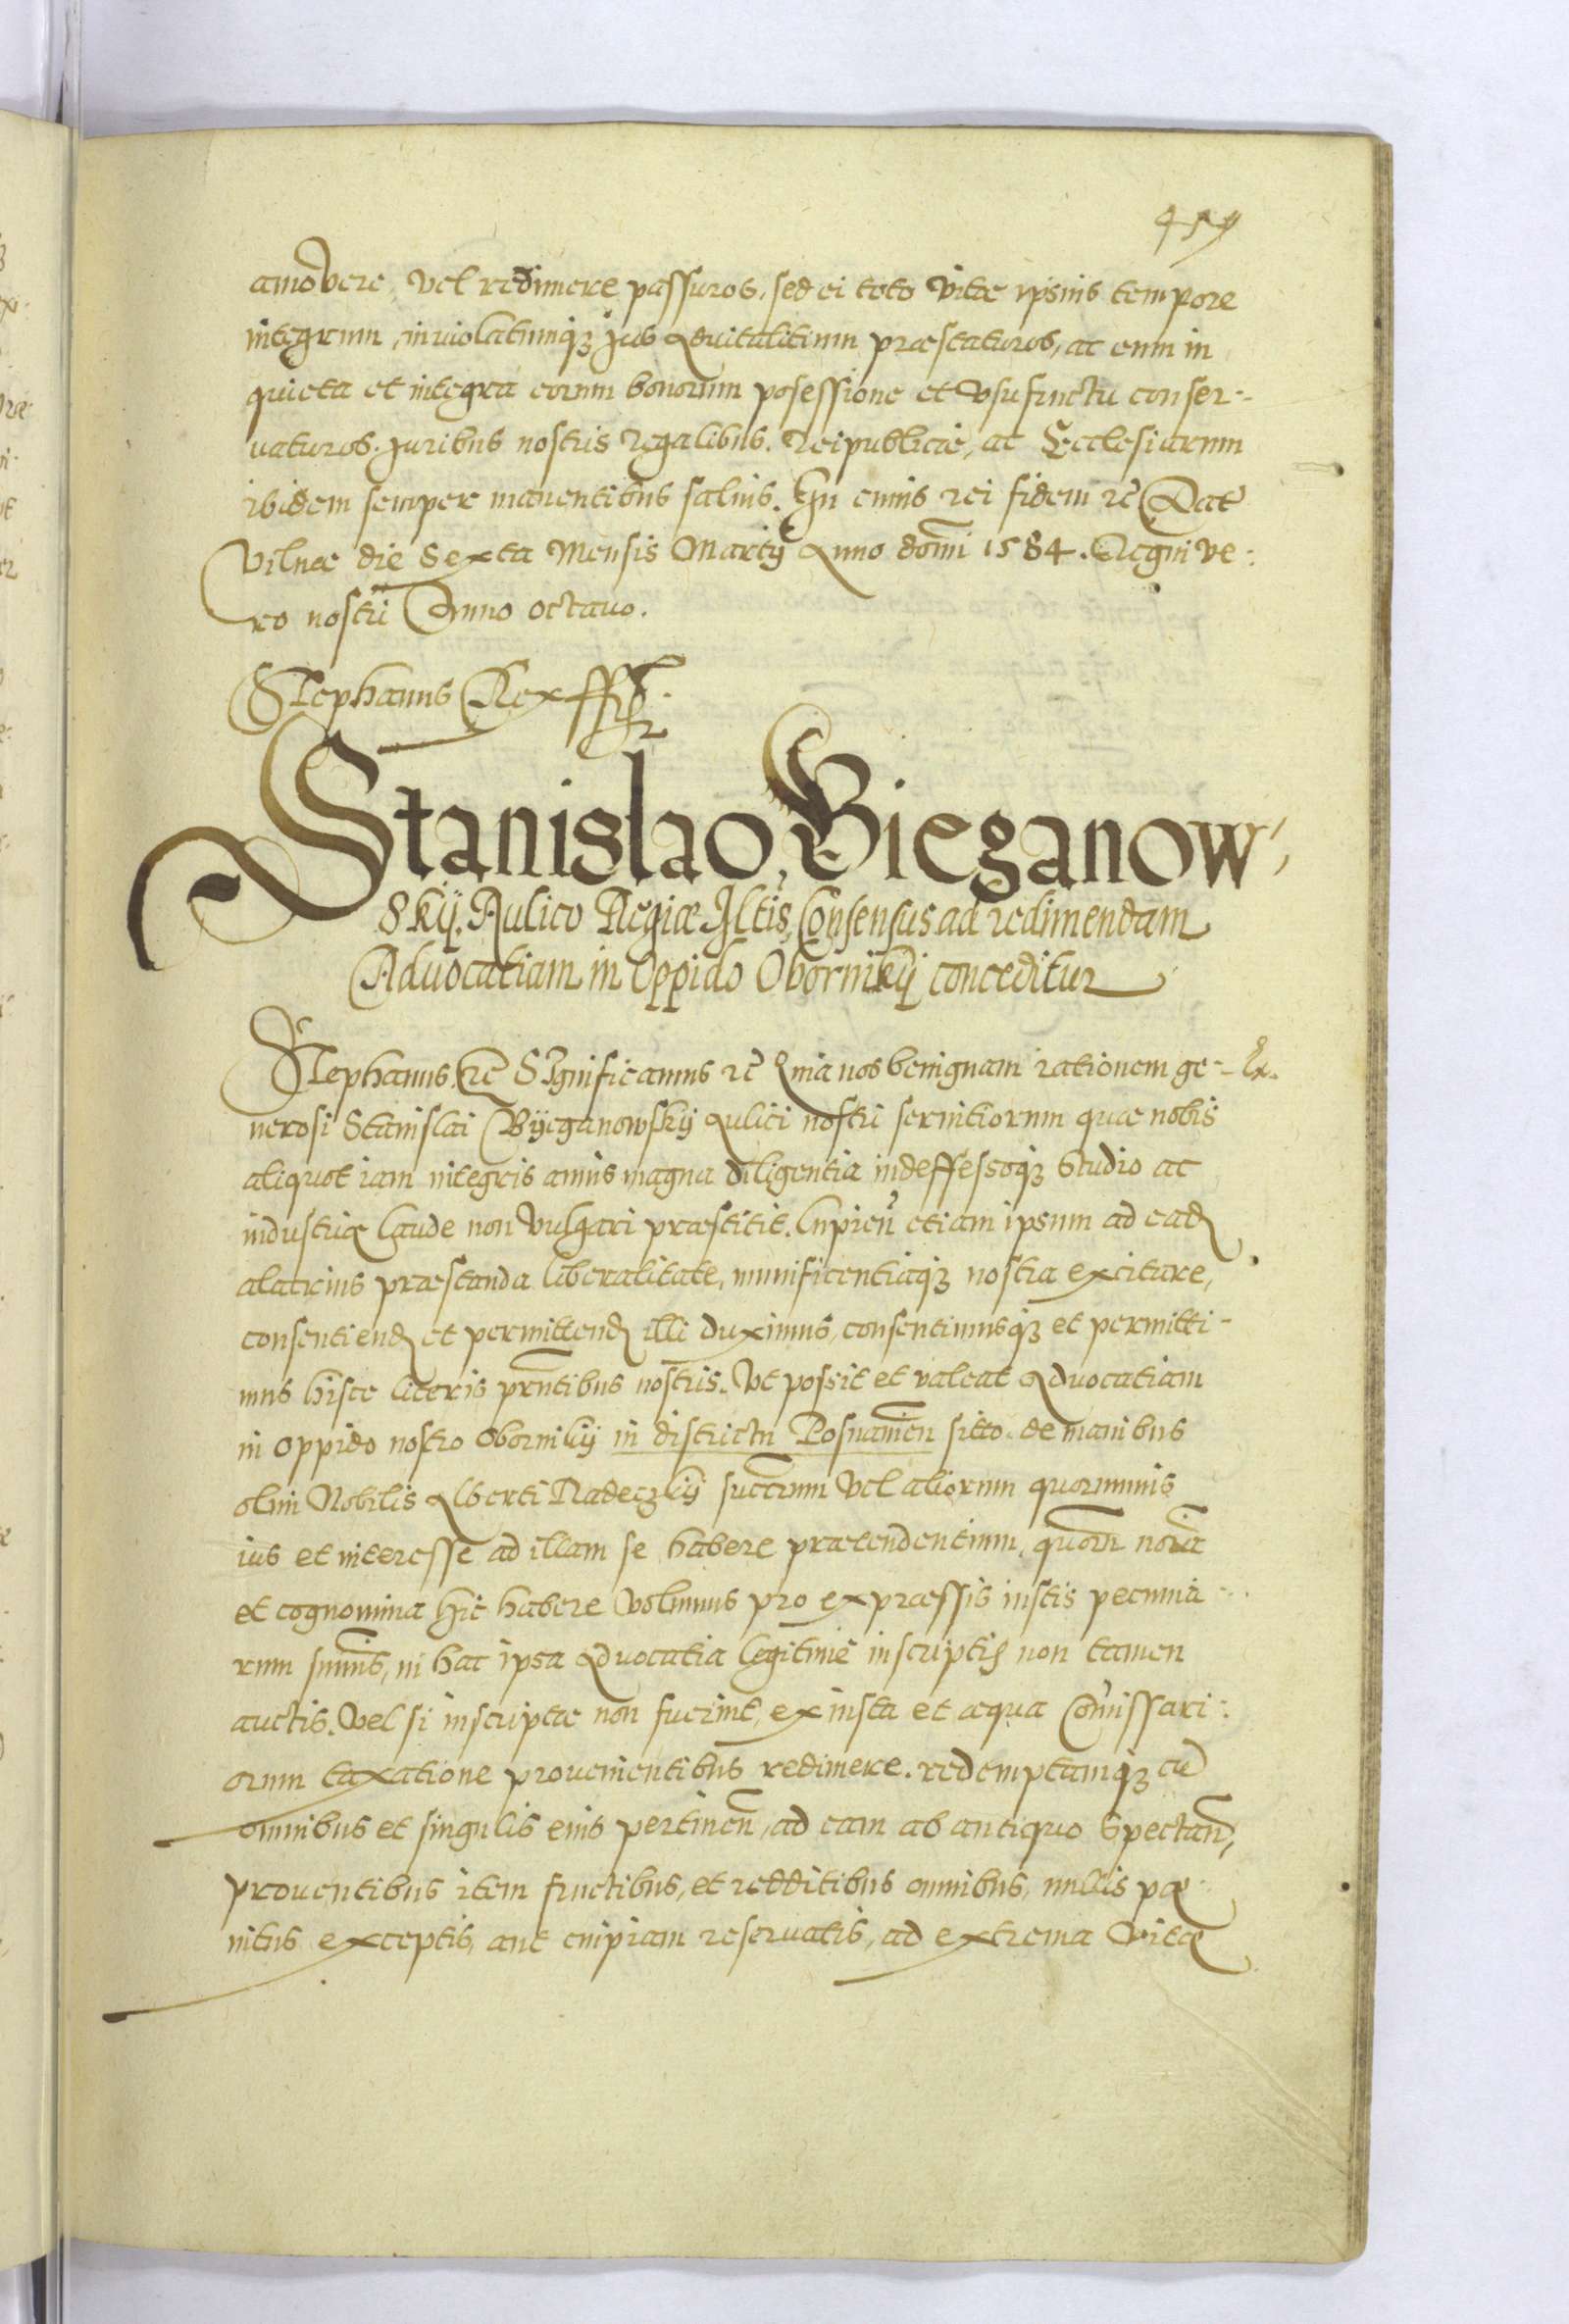 459
amovere, vel redimere passuros, sed ei toto vitae ipsius tempore
integrum, inviolatumqȝ Jus Advitalitium praestaturos, ac eum in
quieta et integra eorum bonorum posessione et Vsufructu conser-
vaturos. Juribus nostris regalibus. Reipublicae, ac Ecclesiarum
ibidem semper manentibus salvis. In cuius rei fidem rc̃ Dat
Vilnae die Sexta Mensis Martij Anno domi 1584. Regni ve:
ro nostri Anno octavo.
Stephanus Rex
Stanislao, Bieganow,
Skij. Aulico Regiae Mtis, Consensus ad redimendam
Advocatiam in Oppido Obornikij conceditur
Stephanus, rc̃ Significamus rc̃ Quia nos benignam rationem ge- Ex.
nerosi Stanislai Byeganowskij Aulici nostri servitiorum quae nobis
aliquot iam integris annis magna diligentia indeffessoqȝ Studio ac
industriae laude non Vulgari praestitit. Cupien etiam ipsum ad ead
alacrius praestanda liberalitate, munificentiaqȝ nostra excitare,
consentiend et permittend illi duximus, consentimusqȝ et permitti-
mus hisce literis prntibus nostris. Vt possit et valeat Advocatiam
in Oppido nostro Obornikij in districtu Posnanien sitto. de manibus
olim Nobilis Alberti Radeczkij succrum Vel aliorum quorumvis
ius et interesse ad illam se habere praetendentium, quorn noia
et cognomina hic habere Volumus pro expraessis iustis pecunia-
rum sumis, in hac ipsa Advocatia legitime inscriptis non tamen
auctis. Vel si inscriptae non fuerint, ex iusta et aequa Comissari:
orum taxatione provenientibus redimere. redemptamqȝ cu
omnibus et singulis eius pertinen, ad eam ab antiquo Spectan,
proventibus item fructibus, et redditibus omnibus, nullis pae
nitus exceptis, aut cuipiam reservatis, ad extrema Vitae